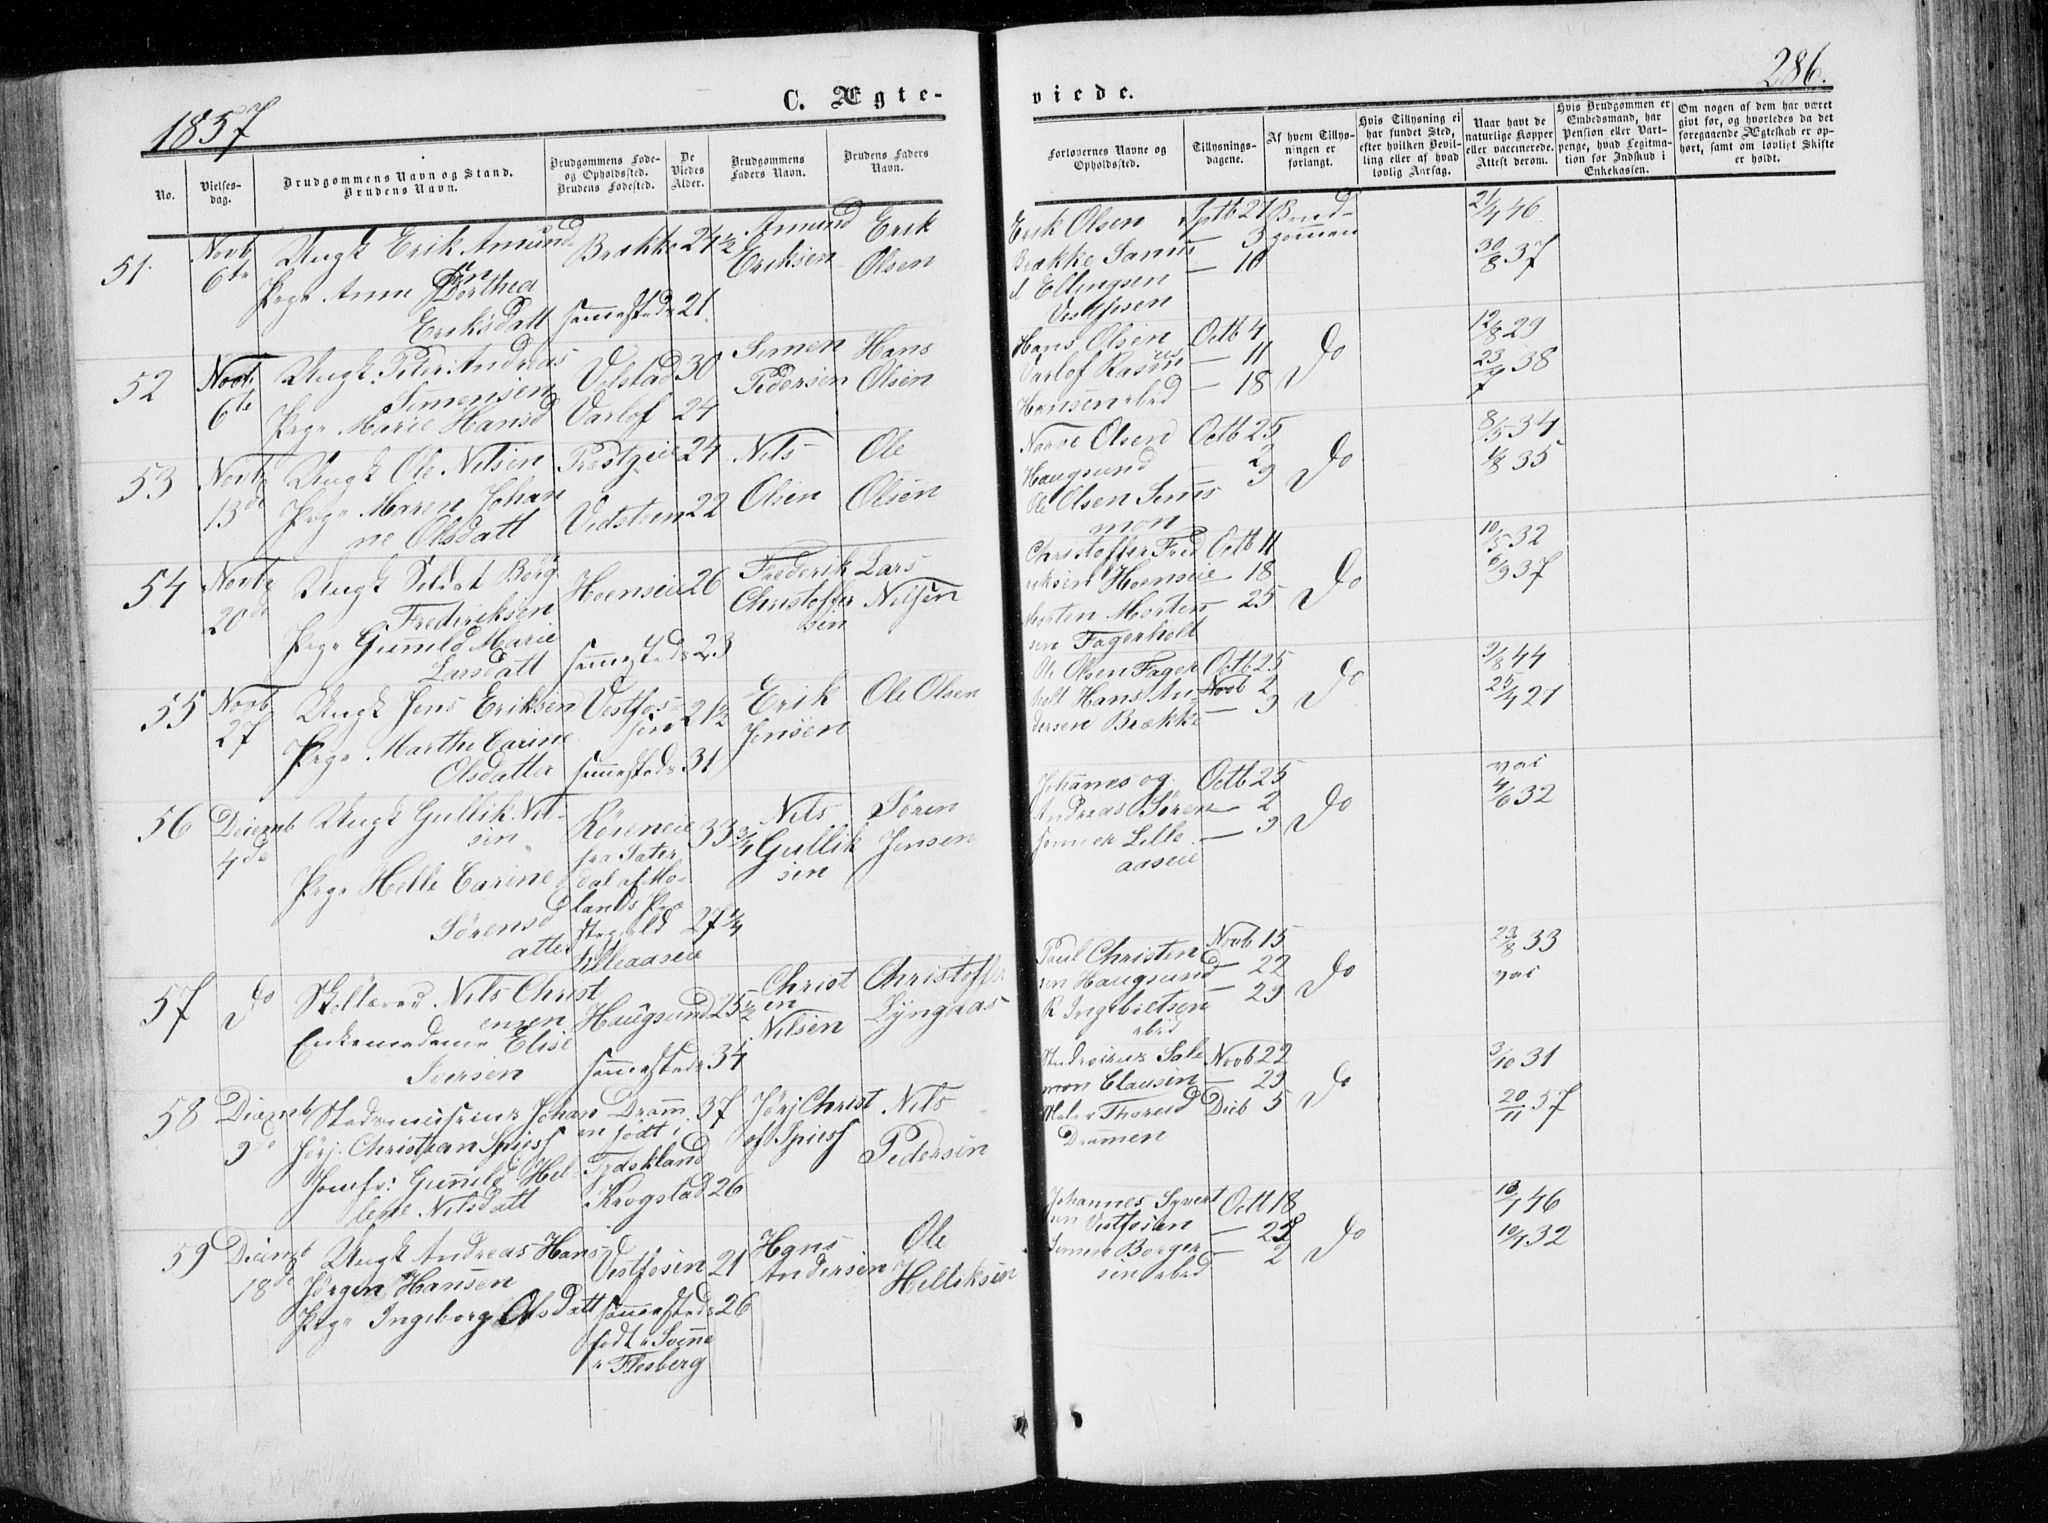 1857
C. Ægte-
viede.
286.
No.
Vielses-
dag.
Brudgommens Navn og Stand.
Brudens Navn.
Brudgommens Føde-
og Opholdssted.
Brudens Fødested.
De
Viedes
Alder.
Brudgommens
Faders Navn.
Brudens Faders
Navn.
Forlovernes Navne og
Opholdssted.
Tillysnings-
dagene.
Af hvem Tillys-
ningen er
forlangt.
Hvis Tillysning ei
har fundet Sted,
efter hvilken Bevil-
ling eller af hvad
lovlig Aarsag.
Naar havt de
naturlige Kopper
eller vaccinerede.
Attest derom.
Hvis Brudgommen er
Embedsmand, har
Pension eller Vart-
penge, hvad Legitma-
tion for Indskud i
Enkekassen.
Om nogen af dem har været
givt før, og hvorledes da det
foregaaende Ægteskab er op-
hørt, samt om lovligt Skifte
er holdt.
51. Novb 6te
Ungk Erik Amund
sen
Pige Anne Dorthea
Eriksdatt
Brække 24½
sammesteds 21
Amund
Eriksen
Erik
Olsen
Erik Olsen
Brække Samu
el Ellingsen
Vestfosen
Sptb 27
— 3
— 10
Brud-
gommen
21/4 46
30/8 37
52 Novb 6te
Ungk. Peter Andreas
Simensen
Pige Marie Hansd
Velstad 30
Varlof 24
Simen
Pedersen
Hans
Olsen
Hans Olsen
Varlof Rasm
us
Hansen ibid
Octb 4
— 11
— 18
Do
12/8 29
23/7 38
53 Novb 13de
Ungk Ole Nilsen
Pige Maren Johan
ne Olsdatt
Prestgeie 24
Vedsteen 22
Nils
Olsen
Ole
Olsen
Narve Olsen
Haugsund
Ole Olsen Sims
mon
Octb 25
— 2
— 9
Do
8/5 34
1/8 35
54 Novb 20de
Ungk Soldat Börg
Frederiksen
Pige Gunnild Marie
Larsdatt
Hoenseie 26
sammesteds 23
Frederik
Christoffer
sen
Lars
Nilsen
Christoffer Fred
riksen Hoenseie
Morten Morten
sen Fagerholt
Octb 11
— 18
— 25
Do
10/5 32
6/9 37
55 Novb 27
Ungk Jens Eriksen
Pige Marthe Carine
Olsdatter
Vestfos-
sen 21½
sammesteds 31
Erik
Jensen
Ole Olsen
Ole Olsen Fager
holt Hans An
dersen Brække
Octb 25
Novb 2
— 9
Do
9/8 44
25/4 27
56 Decemb 4de
Ungk Gullik Nil-
sen
Pige Helle Carine
Sørensd
atter
Røreneie 33¾
fra Sater
dal af Ho-
lands Præ
stegjeld 27¼
Lilleaaseie
Nils
Gullik
sen
Søren
Jensen
Johannes og
Andreas Søren
sønner Lille
aaseie
Octb 25
— 2
— 9
Do
vac
4/6 32
57 Do
Skolelærer Nils Christ
ensen
Enkemadame Elise
Iversen
Haugsund 25½
sammesteds 34
Christ
en
Nilsen
Christoffer
Lyngaas
Paul Christen
sen Haugsund
R Ingebretsen
ibid
Novb 15
— 22
— 29
Do
23/8 33
vac
58 Decemb 9de
Stadsmusicus Johan
Jörj Christian Spiess
Jomfr: Gunnild Hel
lene Nilsdatt
Dramm 37
en födt i
Tydskland
Krogstad 26
Jörj Christ
of Spiess
Nils
Pedersen
Sale
mon Clausen
Maler Thoresd
Drammen
Novb 22
— 29
Decb 5
Do
3/10 31
20/11 57
59 Decemb 18de
Ungk Andreas Hans
Jørgen Hansen
Pige Ingeborg Olsdatt
Vestfosen 21
sammesteds 26
født i Svenne
i Flesberg
Hans
Andersen
Ole
Helliksen
Johannes Syvert
sen Vestfosen
Simen Borger
sen ibid
Octb 18
— 25
— 2
Do
18/7 46
10/7 32